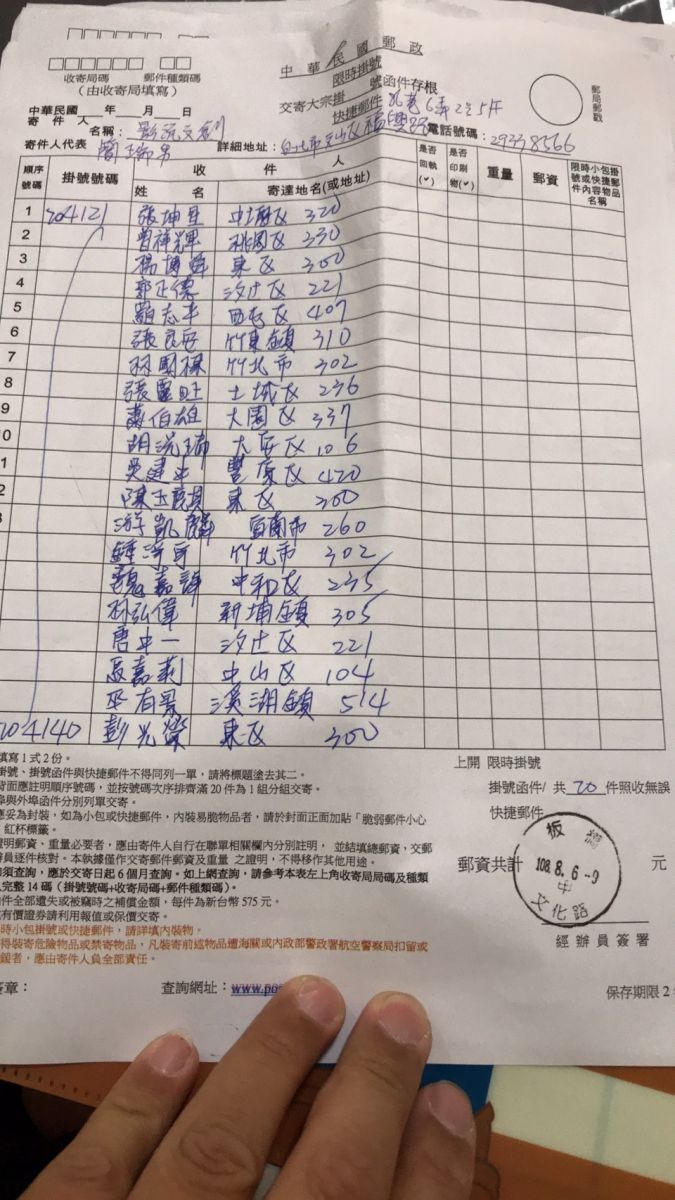 中華民國郵政
限時掛號
收寄局碼 郵件種類碼
(由收寄局填寫)
交寄大宗掛 號函件存根
快捷郵件
郵局郵戳
中華民國 年 月 日
寄件人 名稱:
詳細地址:台北市文山區 電話號碼:29338566
寄件人代表
順序號碼 掛號號碼 收件人 是否回執(✓) 是否印刷物(✓) 重量 郵資 限時小包掛號或快捷郵件內容物品名稱
姓名 寄達地名(或地址)
1 704121 張坤 中壢區 320
2 曾祥輝 桃園區 330
3 楊博舜 東區 300
4 郭正德 汐止區 221
5 羅志丰 西屯區 407
6 張良安 竹東鎮 310
7 林國棟 竹北市 302
8 張 旺 土城區 236
9 蕭伯雄 大園區 337
0 胡 大安區 106
1 吳建 豐原區 420
2 陳 東區 300
3 游凱麟 宜蘭市 260
鍾 竹北市 302
魏嘉 中和區 235
林弘偉 新埔鎮 305
唐中一 汐止區 221
嘉莉 中山區 104
巫有 溪湖鎮 514
704140 彭光榮 東區 300
填寫1式2份。
掛號、掛號函件與快捷郵件不得同列一單,請將標題塗去其二。
背面應註明順序號碼,並按號碼次序排齊滿20件為1組分組交寄。
埠與外埠函件分別列單交寄。
應妥為封裝,如為小包或快捷郵件,內裝易脆物品者,請於封面正面加貼「脆弱郵件小心
」紅杯標籤。
證明郵資、重量必要者,應由寄件人自行在聯單相關欄內分別註明, 並結填總郵資,交郵
辦員逐件核對。本執據僅作交寄郵件郵資及重量 之證明,不得移作其他用途。
如須查詢,應於交寄日起6個月查詢。如上網查詢,請參考本表左上角收寄局局碼及種類
完整14碼(掛號號碼+收寄局碼+郵件種類碼)。
件全部遺失或被竊時之補償金額,每件為新台幣575元。
有價證券請利用報值或保價交寄。
時小包掛號或快捷郵件,請詳填內裝物。
得裝寄危險物品或禁寄物品,凡裝寄前述物品遭海關或內政部警政署航空警察局扣留或
者,應由寄件人員全部責任。
上開 限時掛號
掛號函件/ 共 20 件照收無誤
快捷郵件
郵資共計 元
板橋
108.8.6-9
中
文化路
經辦員簽署
簽章: 查詢網址:www.pos
保存期限2